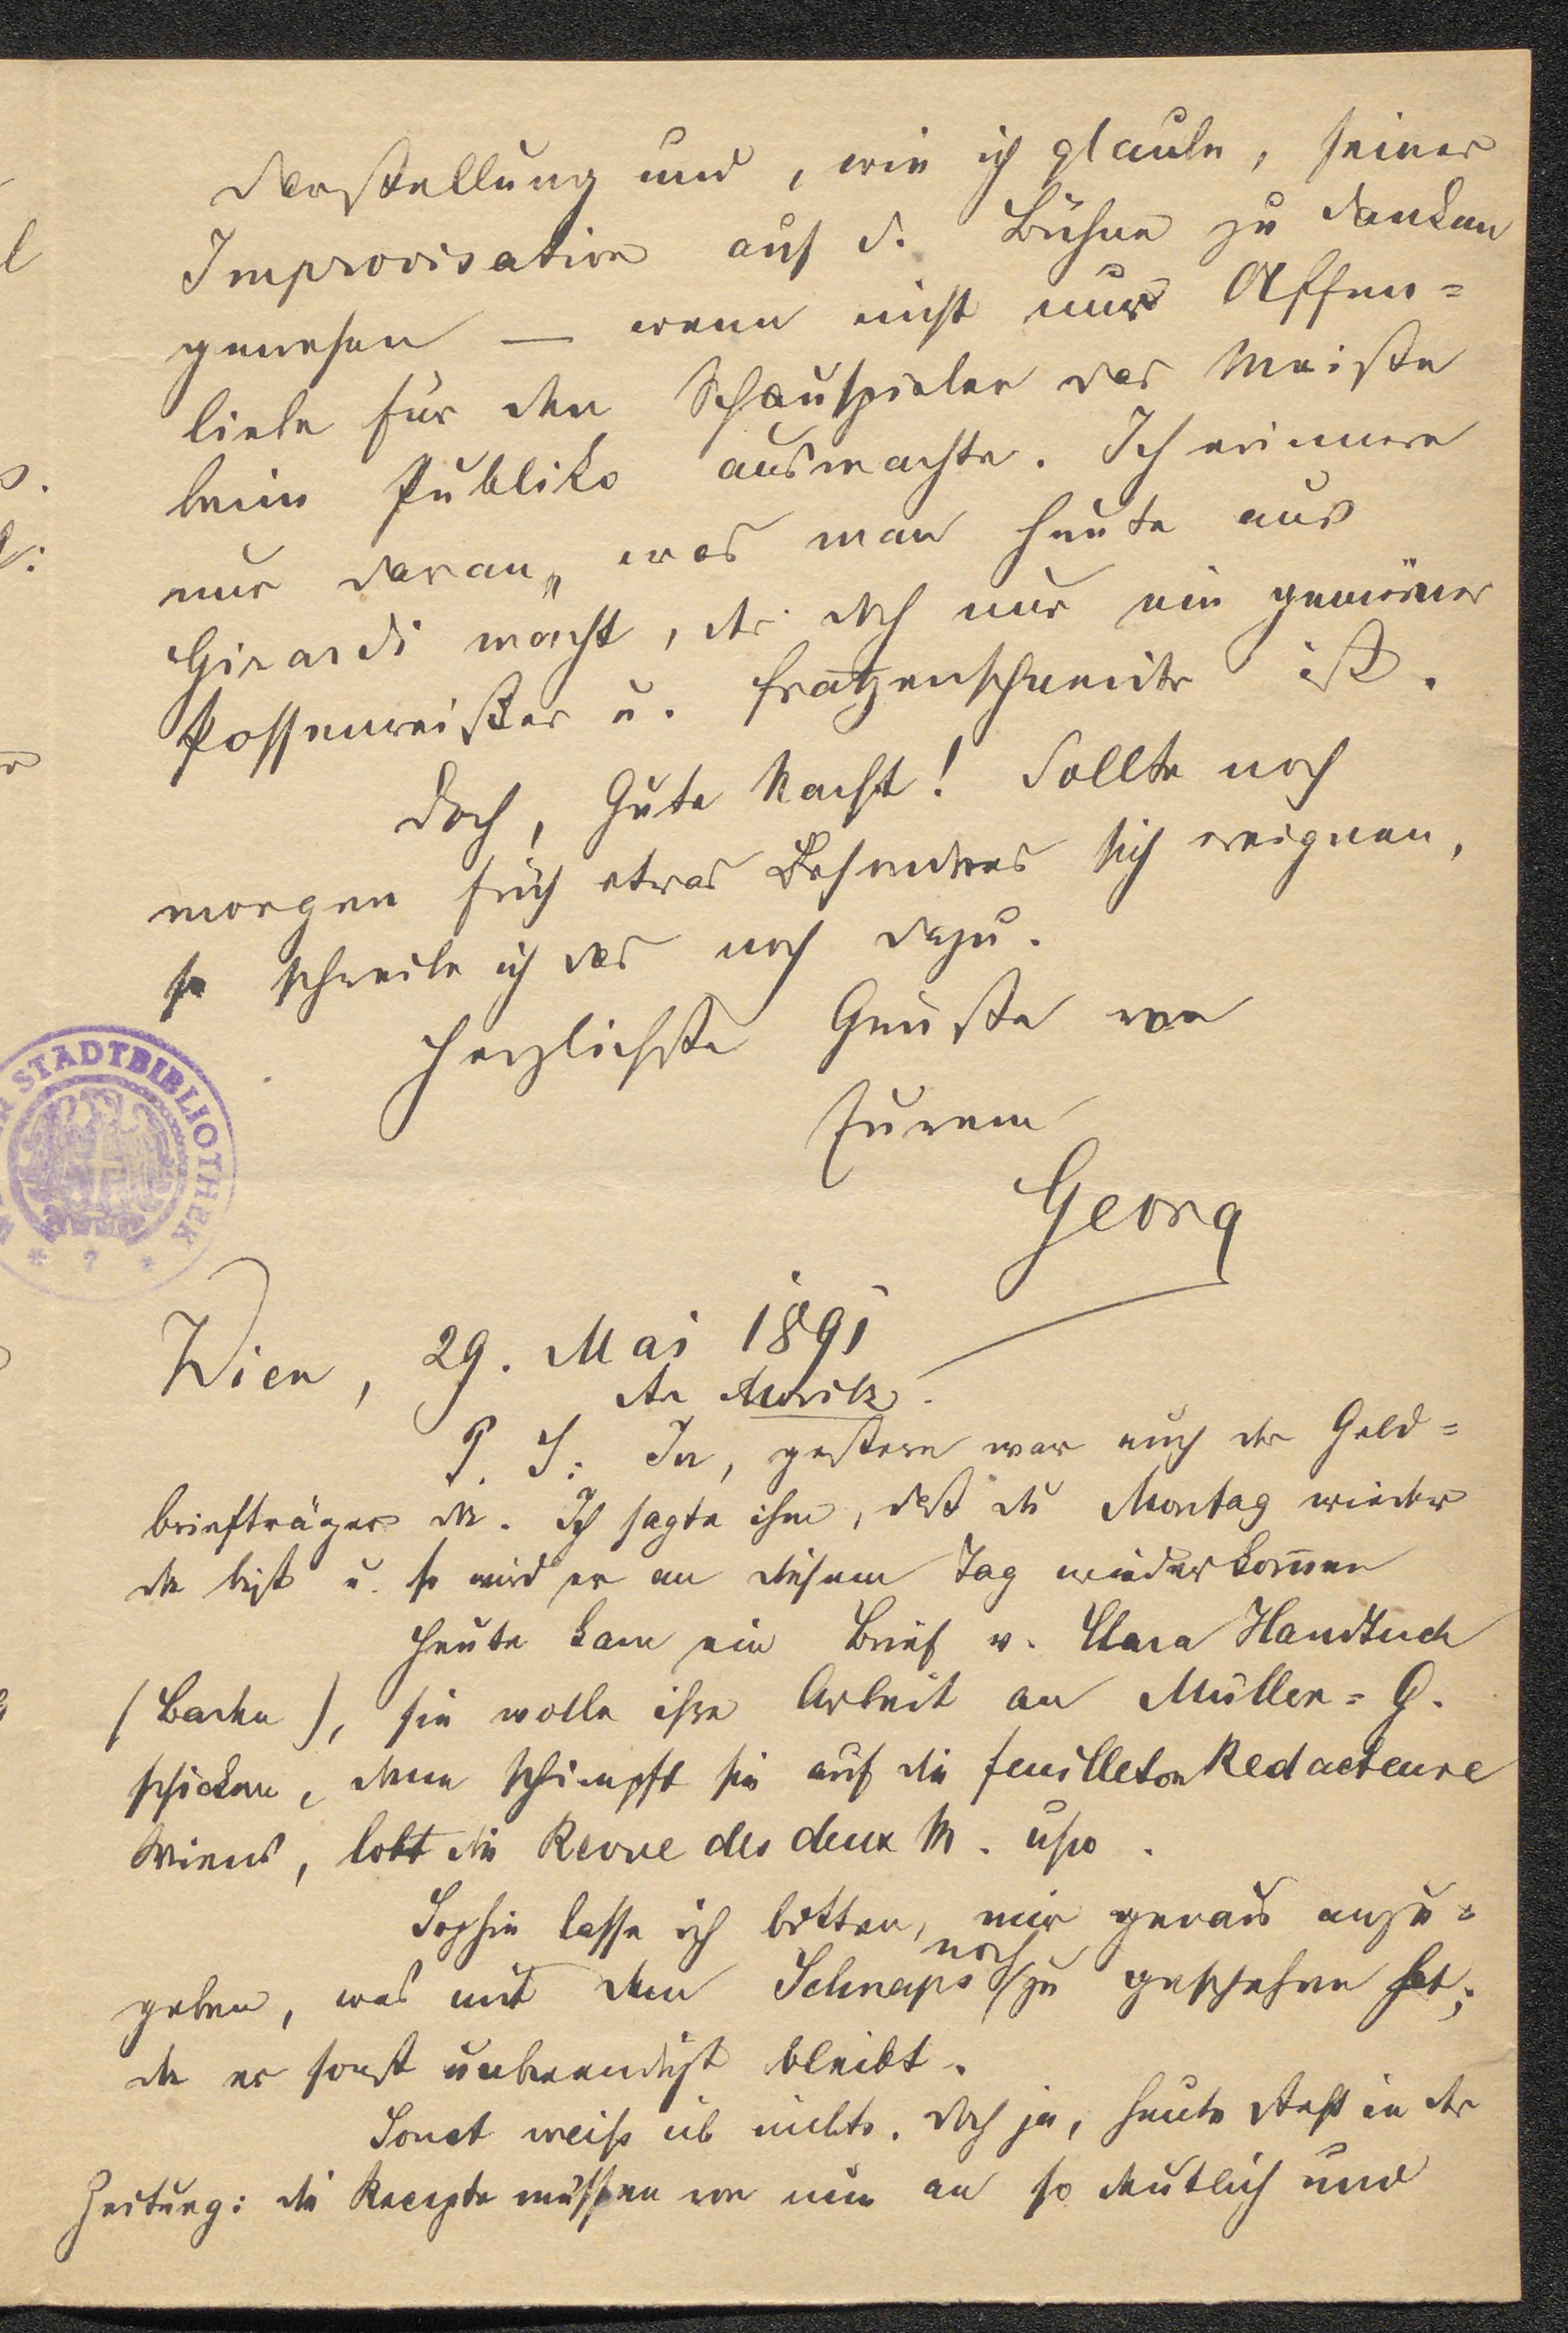 Darstellung und, wie ich glaube, seiner
Improvisation auf d. Bühne zu danken
gewesen — wenn nicht nur Affen=
liebe für den Schauspieler das Meiste
beim Publiko ausmachte. Ich erinnere
nur daran, was man heute aus
Girardi macht, der doch nur ein gemeiner
Possenreißer u. Fratzenschneider ist.
Doch, Gute Nacht! Sollte noch
morgen früh etwas Besonderes sich ereignen,
so schreibe ich das noch dazu.
Herzlichste Grüße von
Eurem
Georg
STADTBIBLIOTHEK
Wien, 29. Mai 1891
An Moriz.
P. S: Ja, gestern war auch der Geld=
briefträger da. Ich sagte ihm, daß du Montag wieder
da bist u. so wird er an diesem Tag wiederkom̅en
Heute kam ein Brief v. Clara Handtuch
( ), sie wolle ihre Arbeit an Müller=G.
schicken, dann schimpft sie auf die Feuilleton Redacteure
Wiens, lobt die Revue des deux M. usw.
Sophie lasse ich bitten, mir genau anzu=
geben, was mit dem Schnaps noch zu geschehen hat,
da er sonst unbeendigt bleibt.
Sonst weiß ich nichts. Doch ja, heute steht in der
Zeitung: die Recepte müssen von nun an so deutlich und